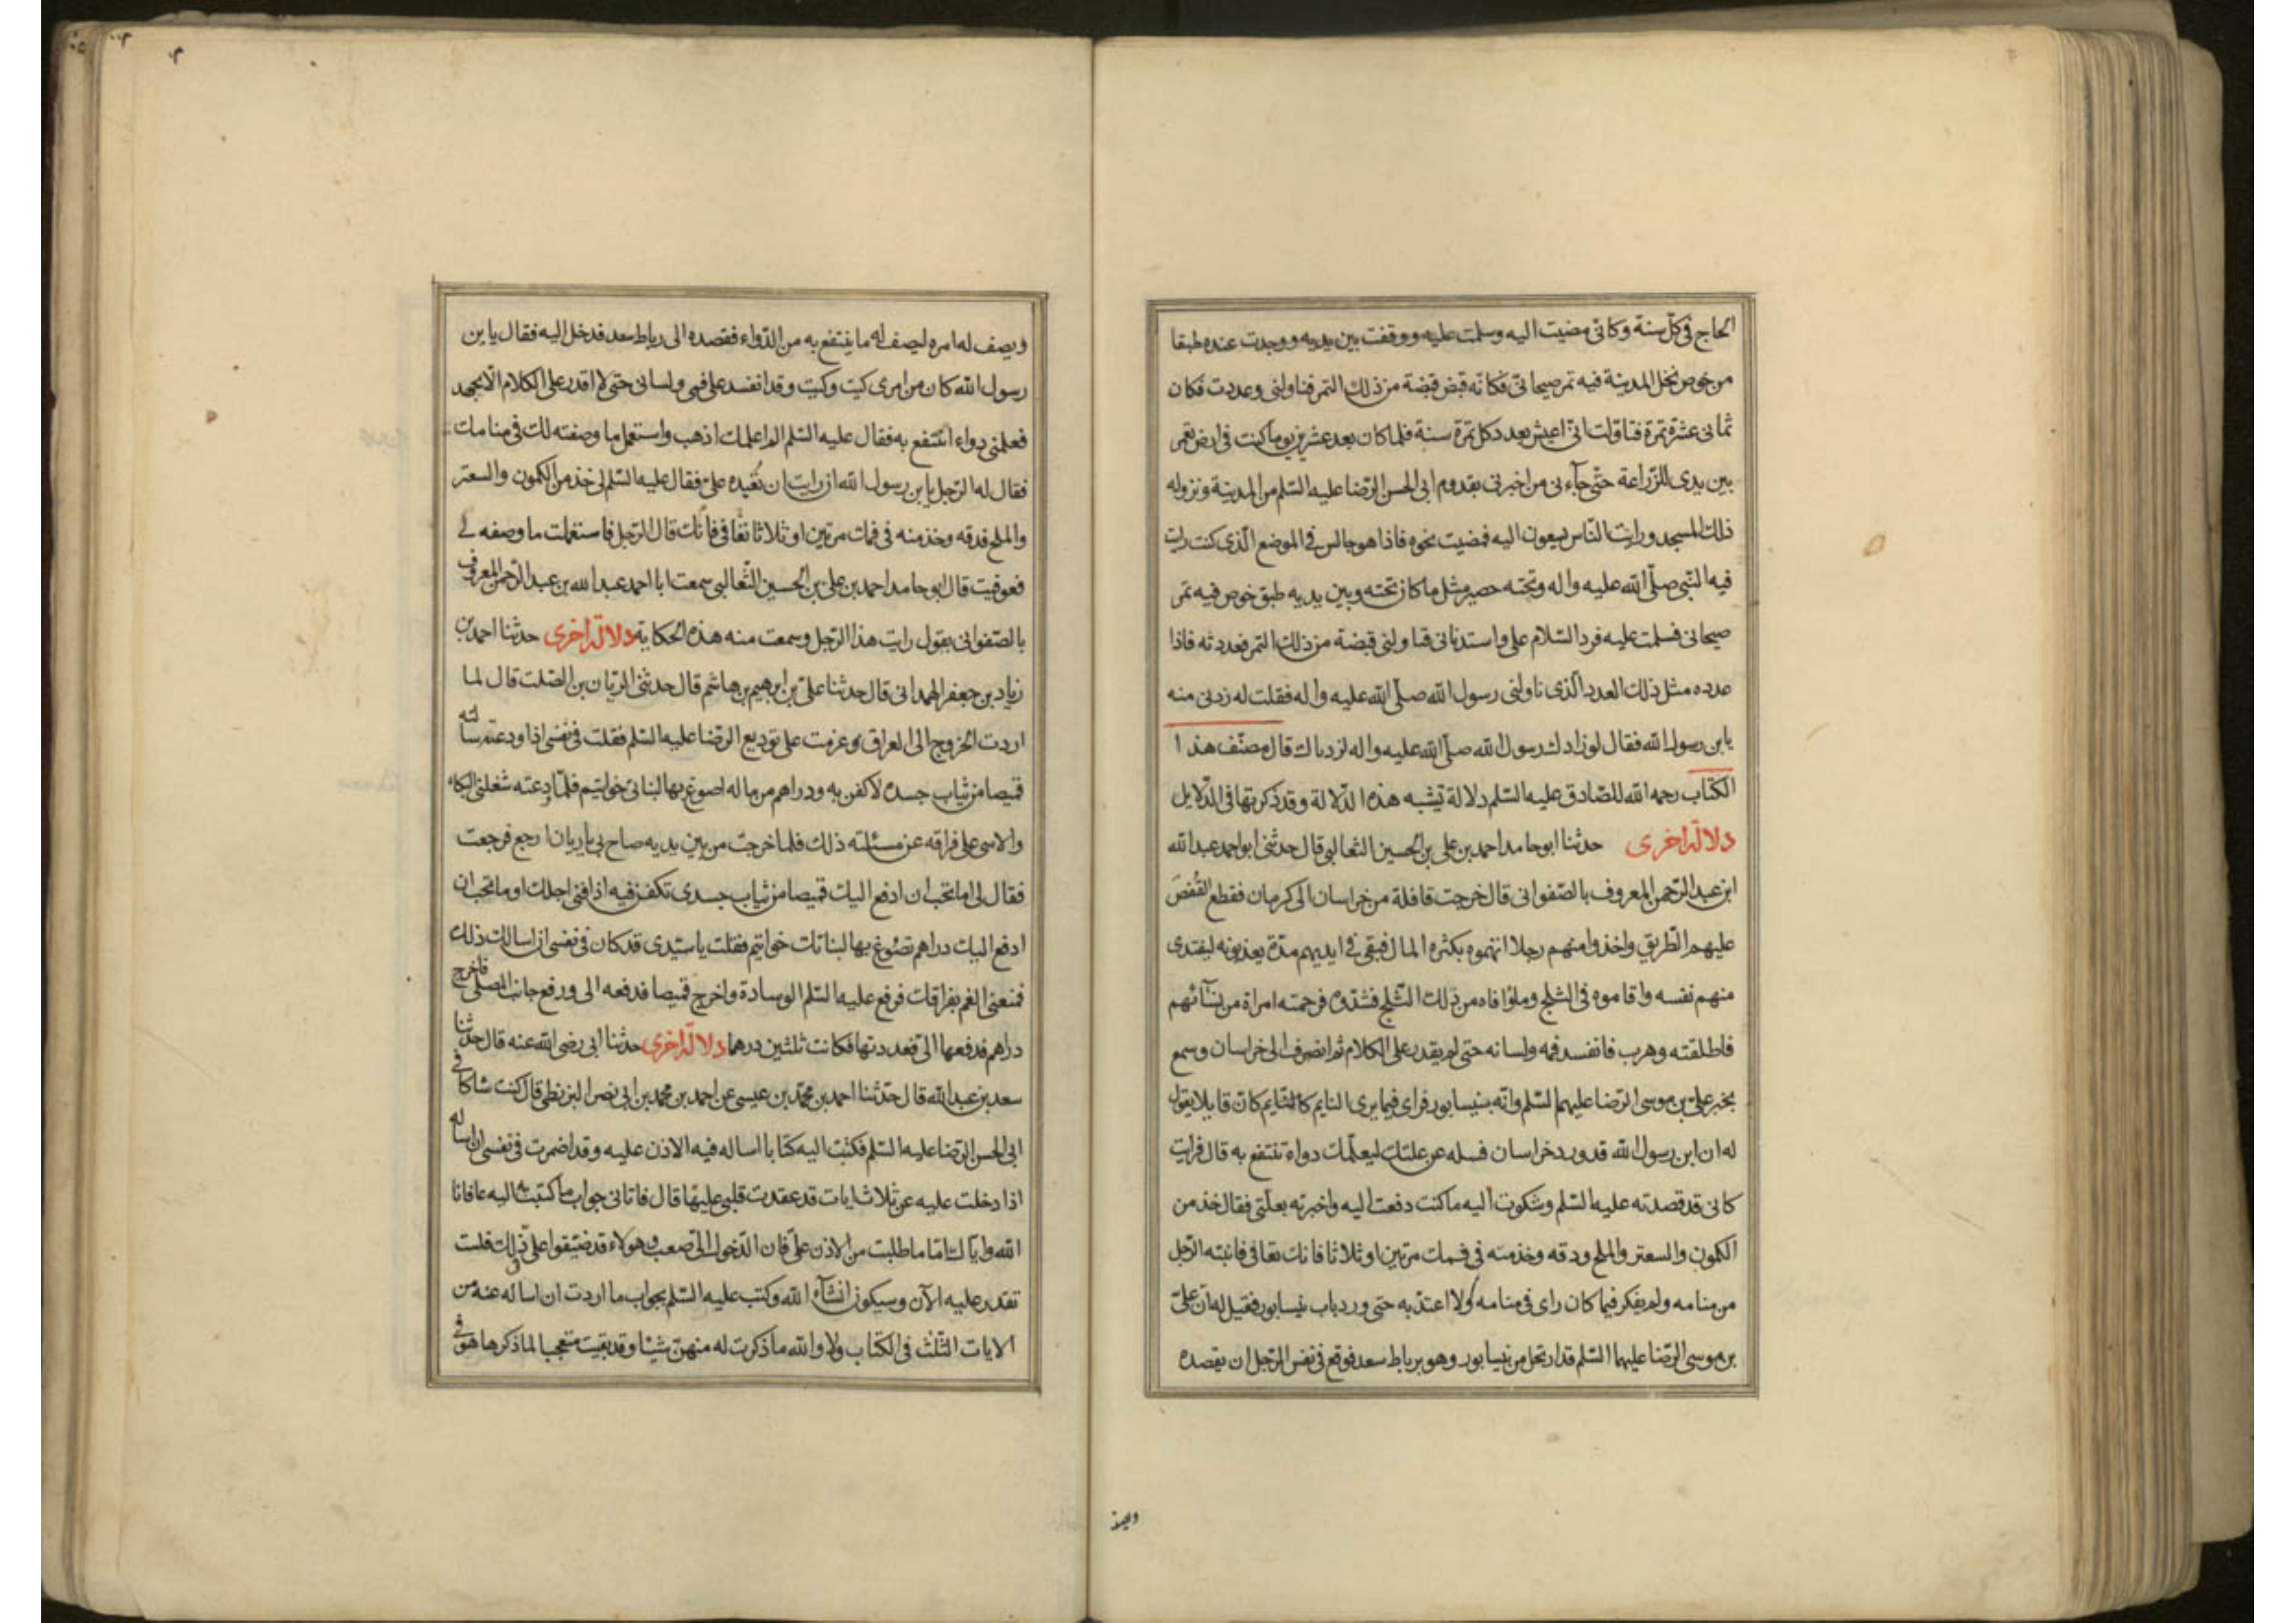 الحاج فى كل سنة وكانى مضيت اليه وسلمت عليه ووقفت بين يديه ووجدت عنده طبقا
من خوص نخل المدينة فيه تمر صيحانى فكانه قبض قبضة من ذلك التمر فناولنى وعددت فكان
ثمانى عشرة تمرة فتاولت انى اعيش بعدد كل تمرة سنة فلما كان بعد عشرين يوما كنت فى ارض تعمر
بين يدى للزراعة حتى جاءنى من اخبرنى بقدوم ابى الحسن الرضا عليه السلم من المدينة ونزوله
ذلك المسجد ورايت الناس يسعون اليه فمضيت نحوه فاذا هو جالس فى الموضع الذى كنت رايت
فيه النبى صلى الله عليه واله وتحته حصير مثل ما كان تحته وبين يديه طبق خوص فيه تمر
صيحانى فسلمت عليه فرد السلام على واستدنانى فناولنى قبضة من ذلك التمر فعددته فاذا
عدده مثل ذلك العدد الذى ناولنى رسول الله صلى الله عليه واله فقلت له زدنى منه
يابن رسول الله فقال لو زادك رسول الله صلى الله عليه واله لزدناك قال مصنف هذا
الكتاب رحمه الله للصادق عليه السلم دلالة تشبه هذه الدلالة وقد ذكرتها فى الدلايل
دلالة اخرى حدثنا ابو حامد احمد بن على بن الحسين الثعالبى قال حدثنى ابو احمد عبد الله
ابن عبد الرحمن المعروف بالصفوانى قال خرجت قافلة من خراسان الى كرمان فقطع القفص
عليهم الطريق واخذوا منهم رجلا اتهموه بكثره المال فبقى فى ايديهم مدة يعذبونه ليفتدى
منهم نفسه واقاموه فى الثلج وملؤا فاه من ذلك الثلج فشدوه فرحمته امراة من نسآئهم
فاطلقته وهرب فانفسد فمه ولسانه حتى لم يقدر على الكلام ثم انصرف الى خراسان وسمع
بخبر على بن موسى الرضا عليهما السلم وانه بنيسابور فراى فيما يرى النايم كان قايلا يقول
له ان ابن رسول الله قد ورد خراسان فسله عن علتك ليعلمك دواء تنتفع به قال فرايت
كانى قد قصدته عليه السلم وشكوت اليه ما كنت دفعت اليه واخبرته بعلتى فقال خذ من
الكمون والسعتر والملح ودقه وخذ منه فى فمك مرتين او ثلاثا فانك تعافى فانتبه الرجل
من منامه ولم يفكر فيما كان راى فى منامه ولا اعتد به حتى ورد باب نيسابور فقيل له ان على
بن موسى الرضا عليهما السلم قد ارتحل من نيسابور وهو برباط سعد فوقع فى نفس الرجل ان يقصده
ويصف له امره ليصف له ما ينتفع به من الدواء فقصده الى رباط سعد فدخل اليه فقال يابن
رسول الله كان من امرى كيت وكيت وقد انفسد على فمى ولسانى حتى لا اقدر على الكلام الا بجهد
فعلمنى دواء انتفع به فقال عليه السلم الم اعلمك اذهب واستعمل ما وصفته لك فى منامك
فقال له الرجل يابن رسول الله ان رايت ان تعيده على فقال عليه السلم لى خذ من الكمون والسعتر
والملح فدقه وخذ منه فى فمك مرتين او ثلاثا تعافى فانك قال الرجل فاستعملت ما وصفه لى
فعوفيت قال ابو حامد احمد بن على بن الحسين الثعالبى سمعت ابا احمد عبد الله بن عبد الرحمن المعروف
بالصفوانى يقول رايت هذا الرجل وسمعت منه هذه الحكاية دلالة اخرى حدثنا احمد بن
زياد بن جعفر الهمدانى قال حدثنا على بن ابرهيم بن هاشم قال حدثنى الريان بن الصلت قال لما
اردت الخروج الى العراق وعزمت على توديع الرضا عليه السلم فقلت فى نفسى اذا ودعته سالته
قميصا من ثياب جسده لاكفن به ودراهم من ماله اصوغ بها لبناتى خواتيم فلما ودعته شغلنى البكاء
والاسى على فراقه عن مسئلته ذلك فلما خرجت من بين يديه صاح بى يا ريان ارجع فرجعت
فقال لى اما تحب ان ادفع اليك قميصا من ثياب جسدى تكفن فيه اذا فنى اجلك اوما تحب ان
ادفع اليك دراهم تصوغ بها لبناتك خواتيم فقلت يا سيدى قد كان فى نفسى ان اسالك ذلك
فمنعنى الغم بفراقك فرفع عليه السلم الوسادة واخرج قميصا فدفعه الى ورفع جانب المصلى فاخرج
دراهم فدفعها الى فعددتها فكانت ثلثين درهما دلالة اخرى حدثنا ابى رضى الله عنه قال حدثنا
سعد بن عبد الله قال حدثنا احمد بن محمد بن عيسى عن احمد بن محمد بن ابى نصر البزنطى قال كنت شاكا فى
ابى الحسن الرضا عليه السلم فكتبت اليه كتابا اساله فيه الاذن عليه وقد اضمرت فى نفسى ان اساله
اذا دخلت عليه عن ثلاث ايات قد عقدت قلبى عليها قال فاتانى جواب ما كتبت به اليه عافانا
الله واياك اما ما طلبت من الاذن على فان الدخول الى صعب وهولاء قد ضيقوا على ذلك فلست
تقدر عليه الآن وسيكون انشآء الله وكتب عليه السلم بجواب ما اردت ان اساله عنه من
الايات الثلث فى الكتاب ولا والله ما ذكرت له منهن شيئا وقد بقيت متعجبا لما ذكرها هو فى
ويصف